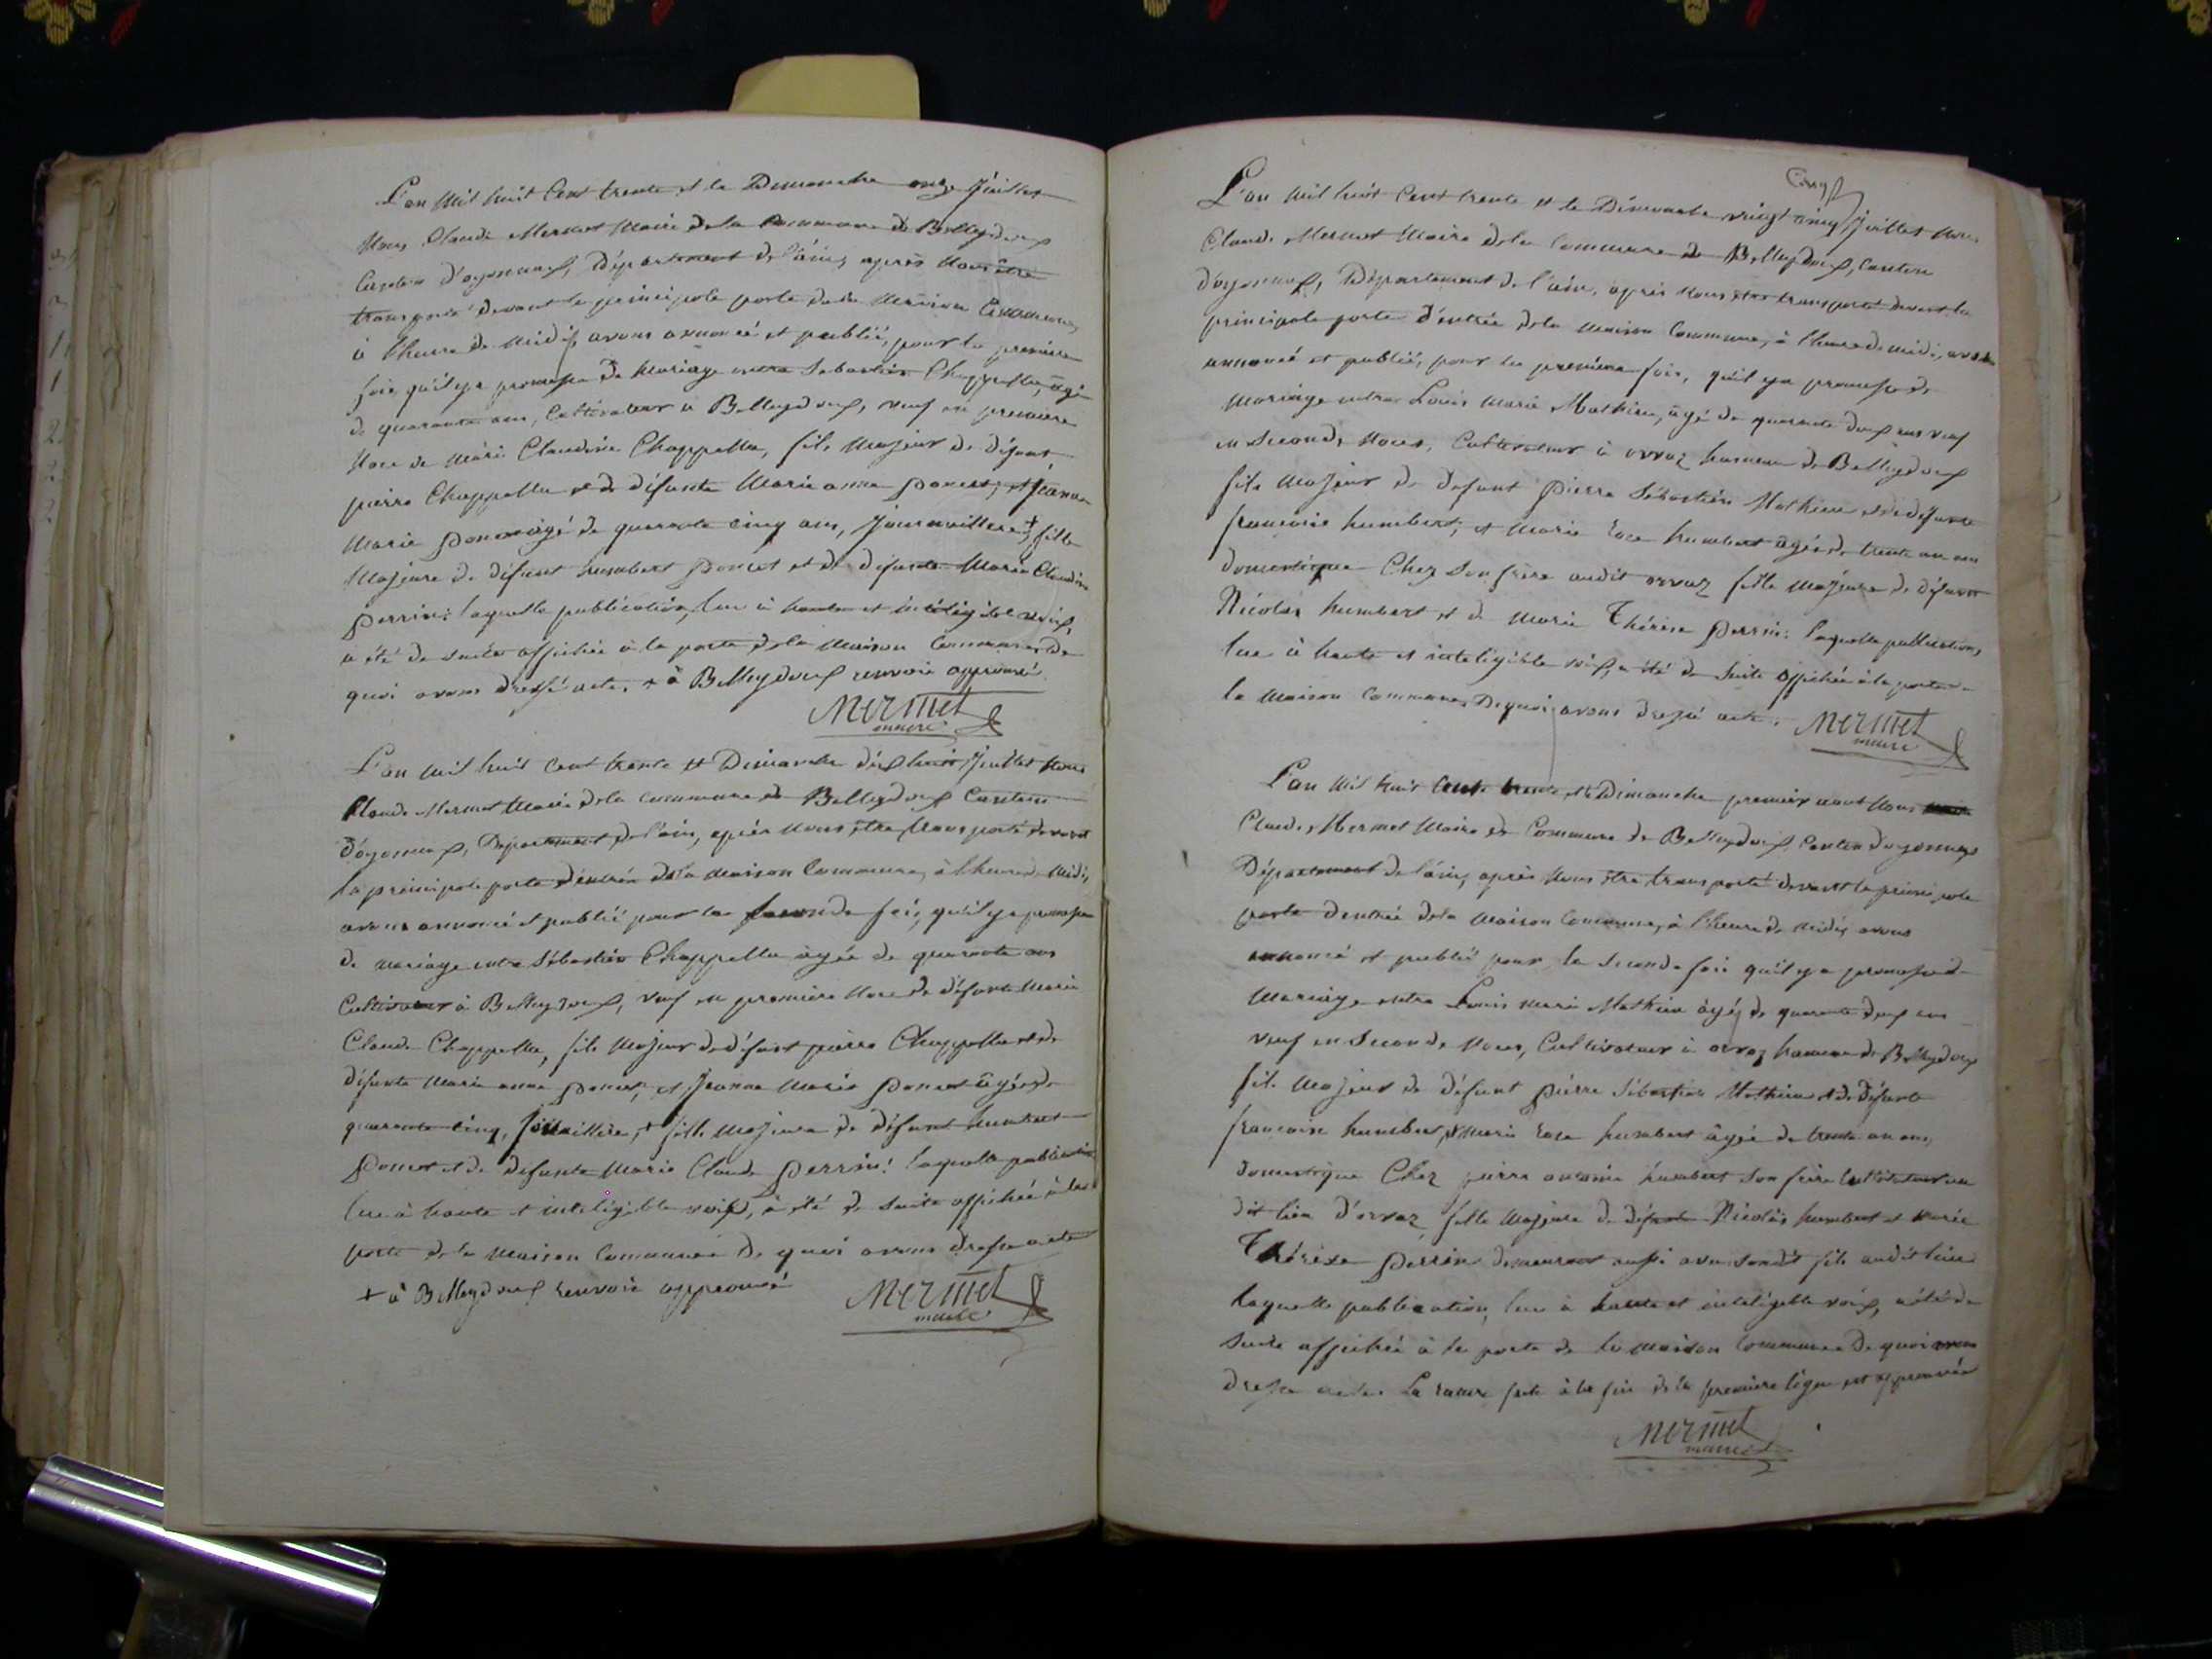 L'an mil huit cent trente et le Dimanche onze Juillet
Nous Claude Mermet Maire de la Commune de Belleydoux
Canton d'oyonnax, Département de l'ain, après nous être
transporté devant la principale porte de la Maison Commune,
à l'heure de midi, avons annoncé et publié, pour la première
fois, qu'il y a promesse de mariage entre Sebastien Chappellu, âgé
de quarante ans, Cultivateur à Belleydoux, veuf en première
Noce de Marie Claudine Chappellu, fils Majeur de défunt
pierre Chappellu et de défunte Marie anne poncet, et Jeanne
Marie poncet âgé de quarante cinq ans, Journaillere + fille
Majeure de défunt humbert poncet et de défunte Marie Claudine
perrin: laquelle publication, lue à haute et inteligible voix,
a été de suite affichée à la porte de la Maison Commune de
quoi avons dressé acte. + à Belleydoux renvoie approuvé
Mermet
maire
L'an mil huit cent trente et Dimanche dix huit Juillet Nous
Claude Mermet Maire de la commune de Belleydoux Canton
d'oyonnax, Département de l'ain, après nous être transporté devant
la principale porte d'entrée de la maison Commune, à l'heure de midi,
avons annoncé et publié pour la seconde fois, qu'il y a promesse
de mariage entre Sébastien Chappellu âgée de quarante ans
Cultivateur à Belleydoux, veuf en première Noce de défunte Marie
Claude Chappellu, fils Majeur de défunt pierre Chappellu et de
défunte Marie anne poncet, et Jeanne Marie poncet âgée de
quarante cinq, + fille Majeure de défunt humbert
poncet et de défunte Marie Claude perrin: laquelle publication
lue à haute et inteligible voix, a été de suite affichée à la
porte de la Maison Commune de quoi avons dressé acte
+ à Belleydoux renvoie approuvé
Mermet
maire
Cinq
L'an mil huit Cent trente et le Dimanche vingt cinq Juillet nous
Claude Mermet Maire de la Commune de Belleydoux, canton
d'oyonnax, Département de l'ain, après nous être transporté devant la
principale porte d'entrée de la maison Commune, à l'heure de midi, avons
annoncé et publié, pour la première fois, qu'il y a promesse de
mariage entre Louis Marie Mathieu, âgé de quarante deux ans veuf
en seconde Noces, Cultivateur à orvaz hameau de Belleydoux
fils Majeur de defunt pierre Sébastien Mathieu et de défunte
francoise humbert; et Marie Rose humbert âgée de trente un ans
domestique Chez son frère audit orvaz fille majeure de défunt
Nicolas humbert et de Marie Thérèse perrin: laquelle publication,
lue à haute et inteligible voix, a été de suite affichée à la porte de
la Maison Commune, De quoi avons dressé acte.
Mermet
maire
L'an mil huit cent trente, et le Dimanche premier aout Nous
Claude Mermet Maire de Commune de Belleydoux, Canton d'oyonnax
Département de l'ain, après nous être transporté devant la principale
porte d'entrée de la Maison Commune, à l'heure de midi, avons
annoncé et publié pour la seconde fois qu'il y a promesse de
Mariage entre Louis Marie Mathieu âgé de quarante deux ans
veuf en Seconde Noces, Cultivateur à orvaz hameau de Belleydoux
fils Majeur de défunt pierre Sébastien Mathieu et de défunte
francoise humbert, et Marie Rose humbert âgée de trente un ans,
domestique Chez pierre antoine humbert son frère Cultivateur au
dit lieu d'orvaz, fille Majeure de défunt Nicolas humbert et Marie
Thérèse perrin demeurant aussi avec sondit fils audit lieu
laquelle publication, lue à haute et inteligible voix, a été de
suite affichée à la porte de la maison Commune De quoi avons
dressé acte. La rature faite à la fin de la première ligne est approuvée
Mermet
maire